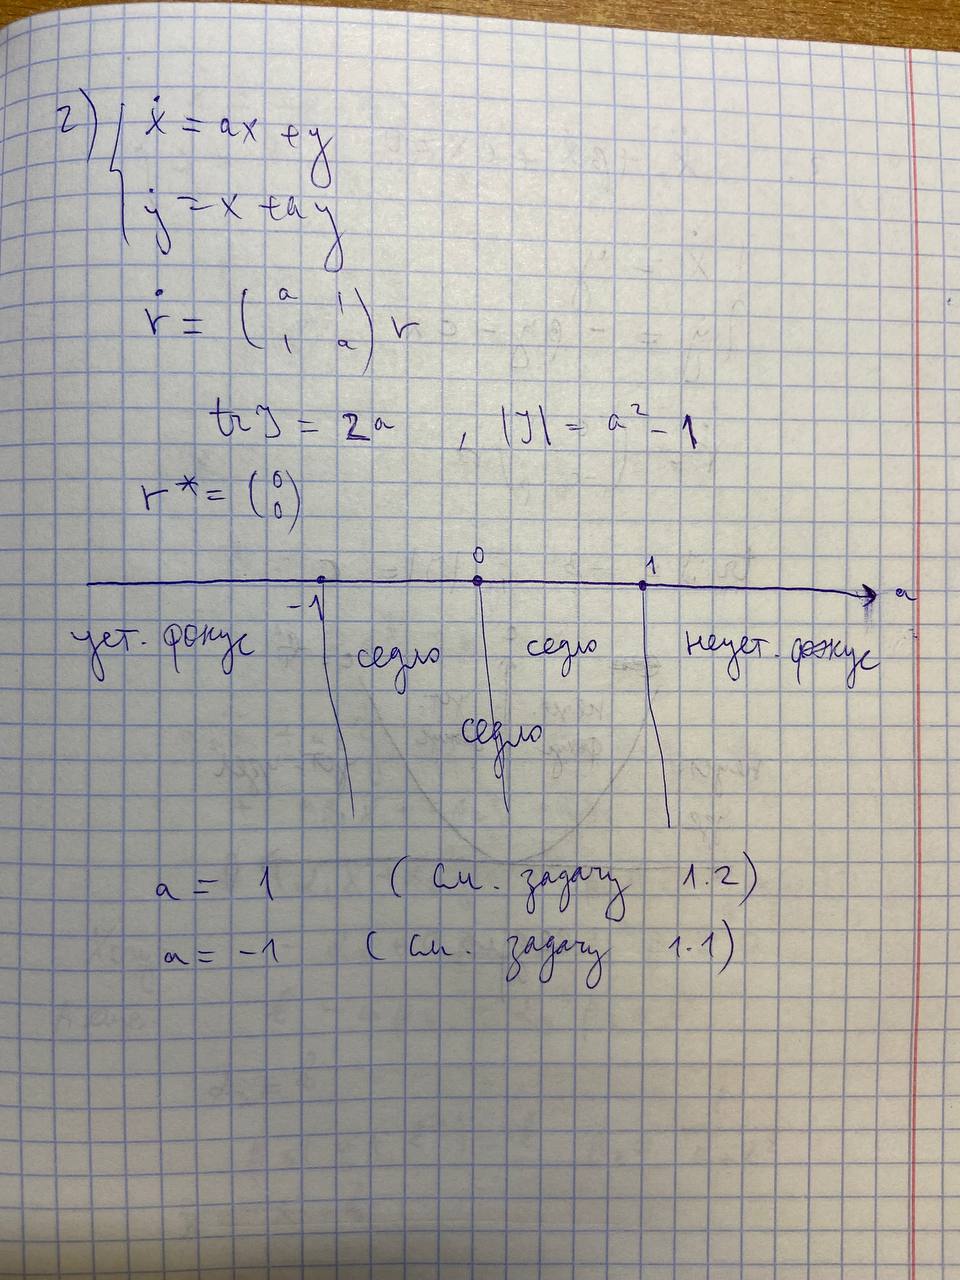 2) { ẋ = ax + y
ẏ = x + ay
ṙ = ( a 1
1 a ) r
tr J = 2a , |J| = a² - 1
r* = ( 0
0 )
-1 0 1 a
уст. фокус седло седло неуст. фокус
седло
a = 1 ( см. задачу 1.2)
a = -1 ( см. задачу 1.1)